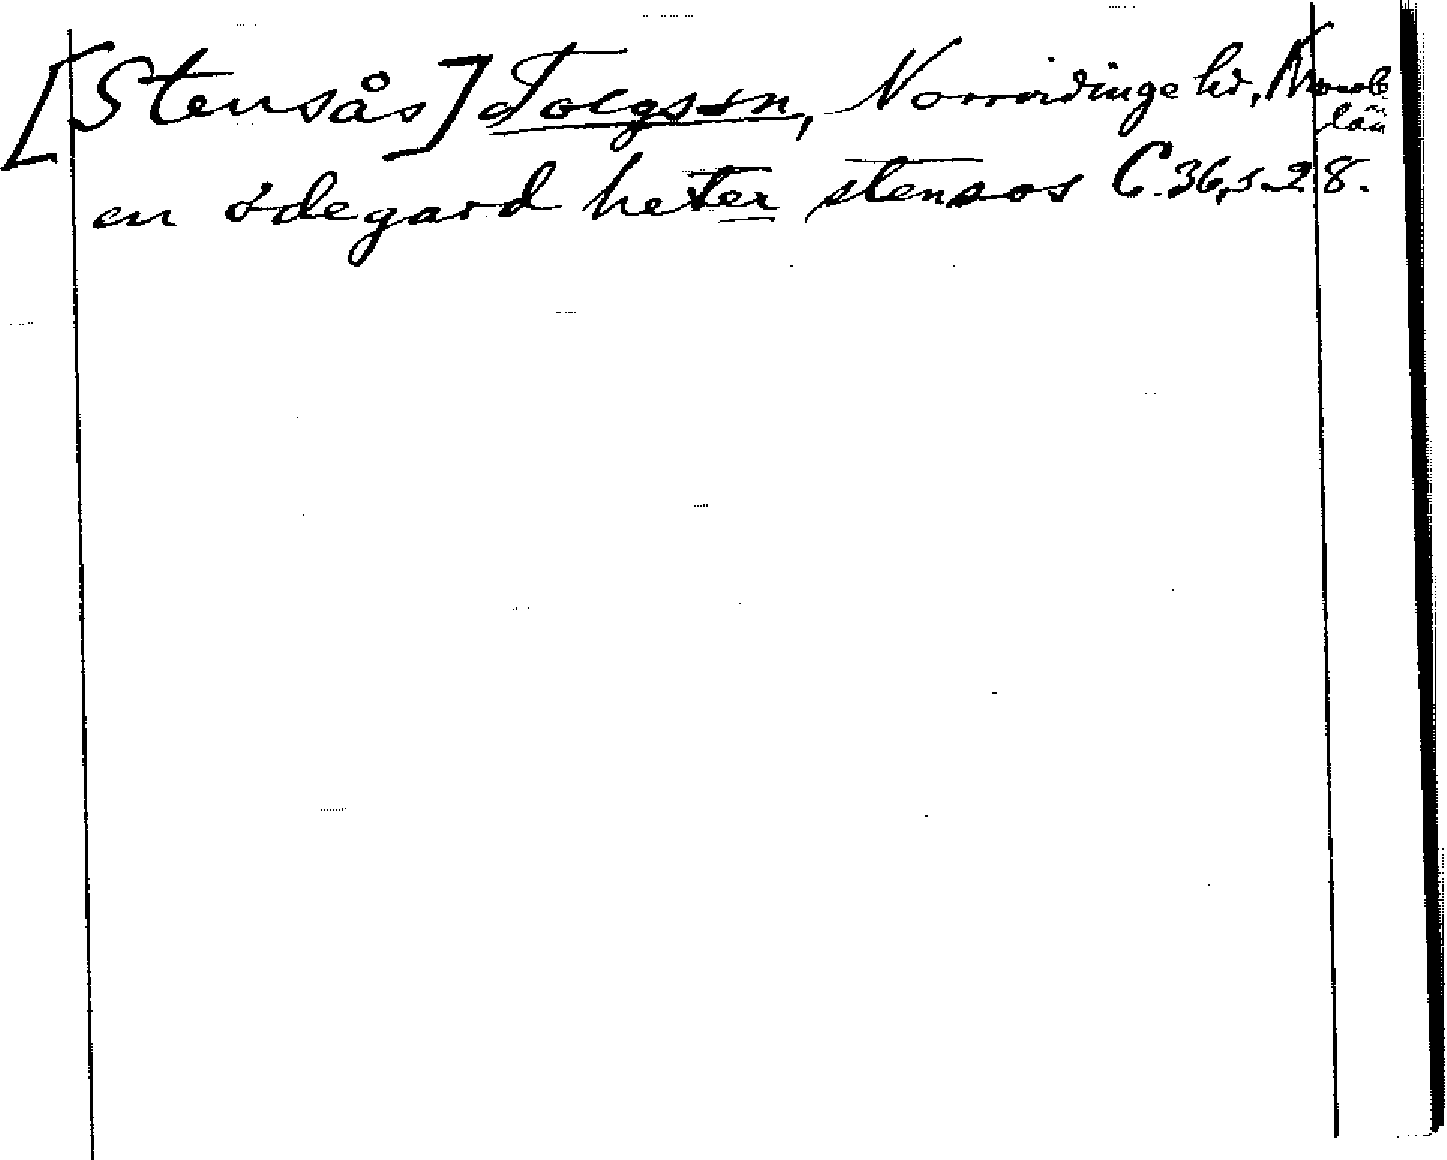 [Stensås] Tolgs sn, Norrvidinge hd, Kronob
län
en ödegard heter stensos C.36, s. 28.